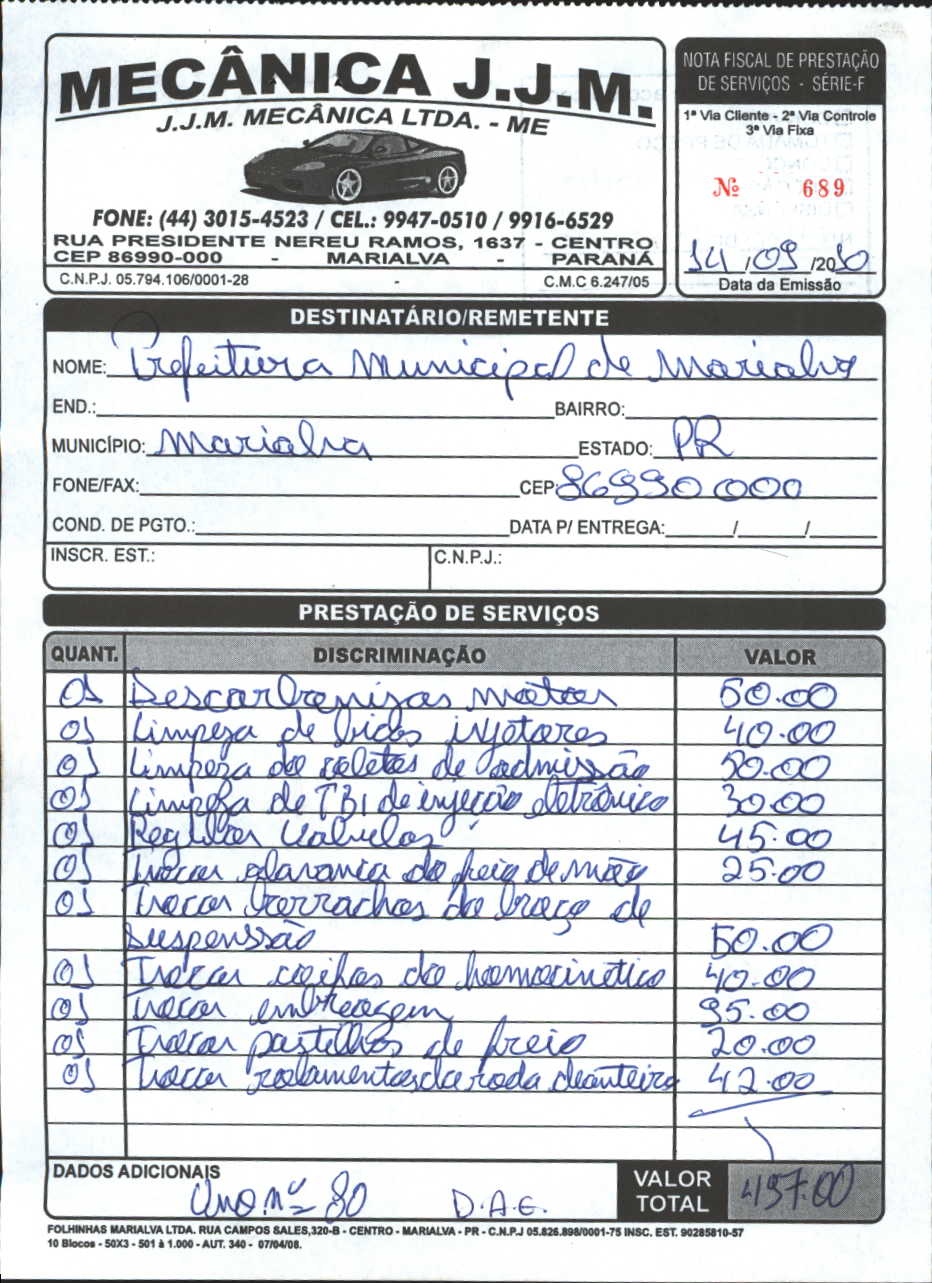 MECÂNICA J.J.M.
J.J.M. MECÂNICA LTDA. - ME
FONE: (44) 3015-4523 / CEL.: 9947-0510 / 9916-6529
RUA PRESIDENTE NEREU RAMOS, 1637 - CENTRO
CEP 86990-000 - MARIALVA - PARANÁ
C.N.P.J. 05.794.106/0001-28 - C.M.C 6.247/05
NOTA FISCAL DE PRESTAÇÃO
DE SERVIÇOS - SÉRIE-F
1ª Via Cliente - 2ª Via Controle
3ª Via Fixa
Nº 689
14/09/2010
Data da Emissão
DESTINATÁRIO/REMETENTE
NOME: Prefeitura Municipal de Marialva
END.: BAIRRO:
MUNICÍPIO: Marialva ESTADO: PR
FONE/FAX: CEP: 86990000
COND. DE PGTO.: DATA P/ ENTREGA: / /
INSCR. EST.: C.N.P.J.:
PRESTAÇÃO DE SERVIÇOS
QUANT. DISCRIMINAÇÃO VALOR
01 Descarbonizas motor 50.00
01 Limpeza de bicos injetores 40.00
01 Limpeza do coletos de admissão 50.00
01 Limpeza de TBI de injeção eletrônica 30.00
01 Regular valvulas 45.00
01 Trocar alavanca do freio de mão 25.00
01 Trocar borrachas do braço de
suspenssão 60.00
01 Trocar coifas do homocinetico 40.00
01 Trocar embreagem 95.00
01 Trocar pastilhas de freio 20.00
01 Trocar rolamentos da roda dianteira 42.00
DADOS ADICIONAIS
Uno nº 80 D.A.E.
VALOR
TOTAL 497.00
FOLHINHAS MARIALVA LTDA. RUA CAMPOS SALES,320-B - CENTRO - MARIALVA - PR - C.N.P.J 05.826.898/0001-75 INSC. EST. 90285810-57
10 Blocos - 50X3 - 501 à 1.000 - AUT. 340 - 07/04/08.